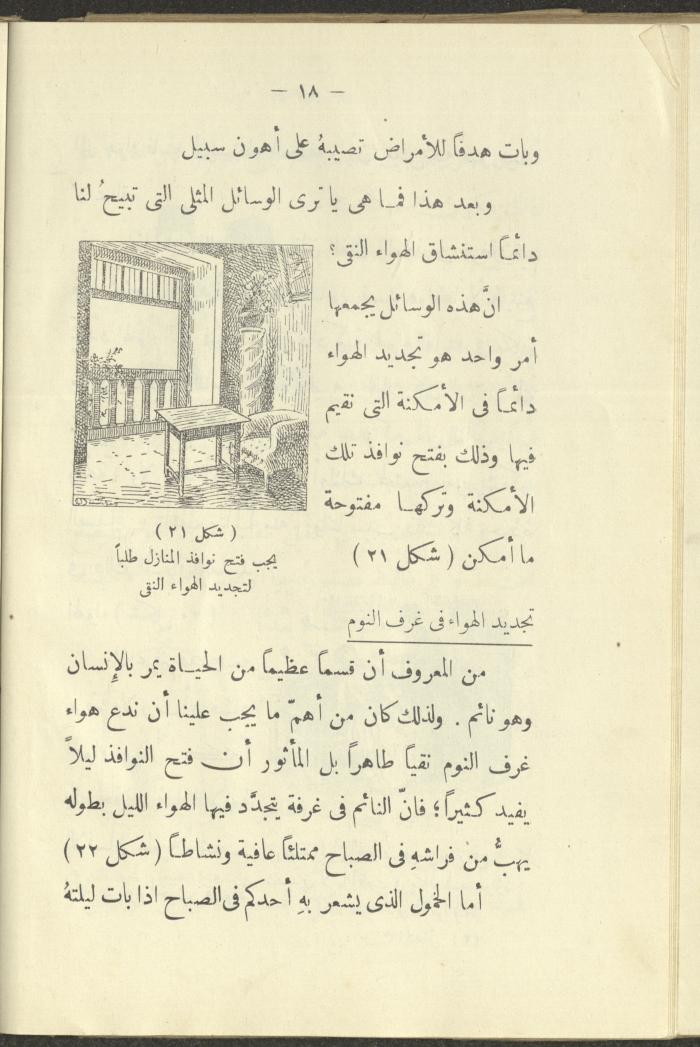 — ١٨ —
وبات هدفاً للأمراض تصيبهُ على أهون سبيل
وبعد هذا فما هى يا ترى الوسائل المثلى التى تبيحُ لنا
دائماً استنشاق الهواء النقى؟
انَّ هذه الوسائل يجمعها
أمر واحد هو تجديد الهواء
دائماً فى الأمكنة التى نقيم
فيها وذلك بفتح نوافذ تلك
الأمكنة وتركها مفتوحة
ما أمكن ( شكل ٢١ )
( شكل ٢١ )
يجب فتح نوافذ المنازل طلباً
لتجديد الهواء النقى
تجديد الهواء فى غرف النوم
من المعروف أن قسماً عظيماً من الحياة يمر بالإنسان
وهو نائم . ولذلك كان من أهمّ ما يجب علينا أن ندع هواء
غرف النوم نقياً طاهراً بل المأثور أن فتح النوافذ ليلاً
يفيد كثيراً؛ فانّ النائم فى غرفة يتجدَّد فيها الهواء الليل بطوله
يهبُّ من فراشهِ فى الصباح ممتلئاً عافية ونشاطاً ( شكل ٢٢ )
أما الخمول الذى يشعر بهِ أحدكم فى الصباح اذا بات ليلتهُ